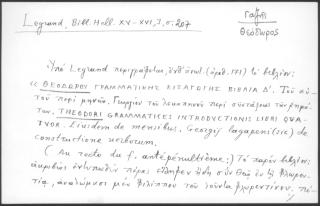 Legrand, Bibl. Hell. XV-XVI, I, σ. 207
Γαζῆς
Θεόδωρος
Ὑπὸ Legrand περιγράφεται, ὑπ' ἀριθ. 171) τὸ βιβλίον:
ΘΕΟΔΩΡΟΥ ΓΡΑΜΜΑΤΙΚΗΣ ΕΙΣΑΓΩΓΗΣ ΒΙΒΛΙΑ Δ'. Τοῦ αὐ-
τοῦ περὶ μηνῶν. Γεωργίου τοῦ Λεκαπηνοῦ περὶ συντάξεως τῶν ῥημά-
των. THEODORI GRAMMATICES INTRODUCTIONIS LIBRI QUA
TUOR. Eiusdem de mensibus. Georgij Lagapeni (sic) de
constructione verborum.
(Au recto du f. antépénultième:) Τὸ παρὸν βιβλίον
ἀκριβῶς πέρας εἴληφεν ἤδη σὺν Θεῷ ἐν Φλωρεν-
τίᾳ, ἀναλώμασι μὲν Φιλίππου τοῦ Ἰούντα φλωρεντίνου.